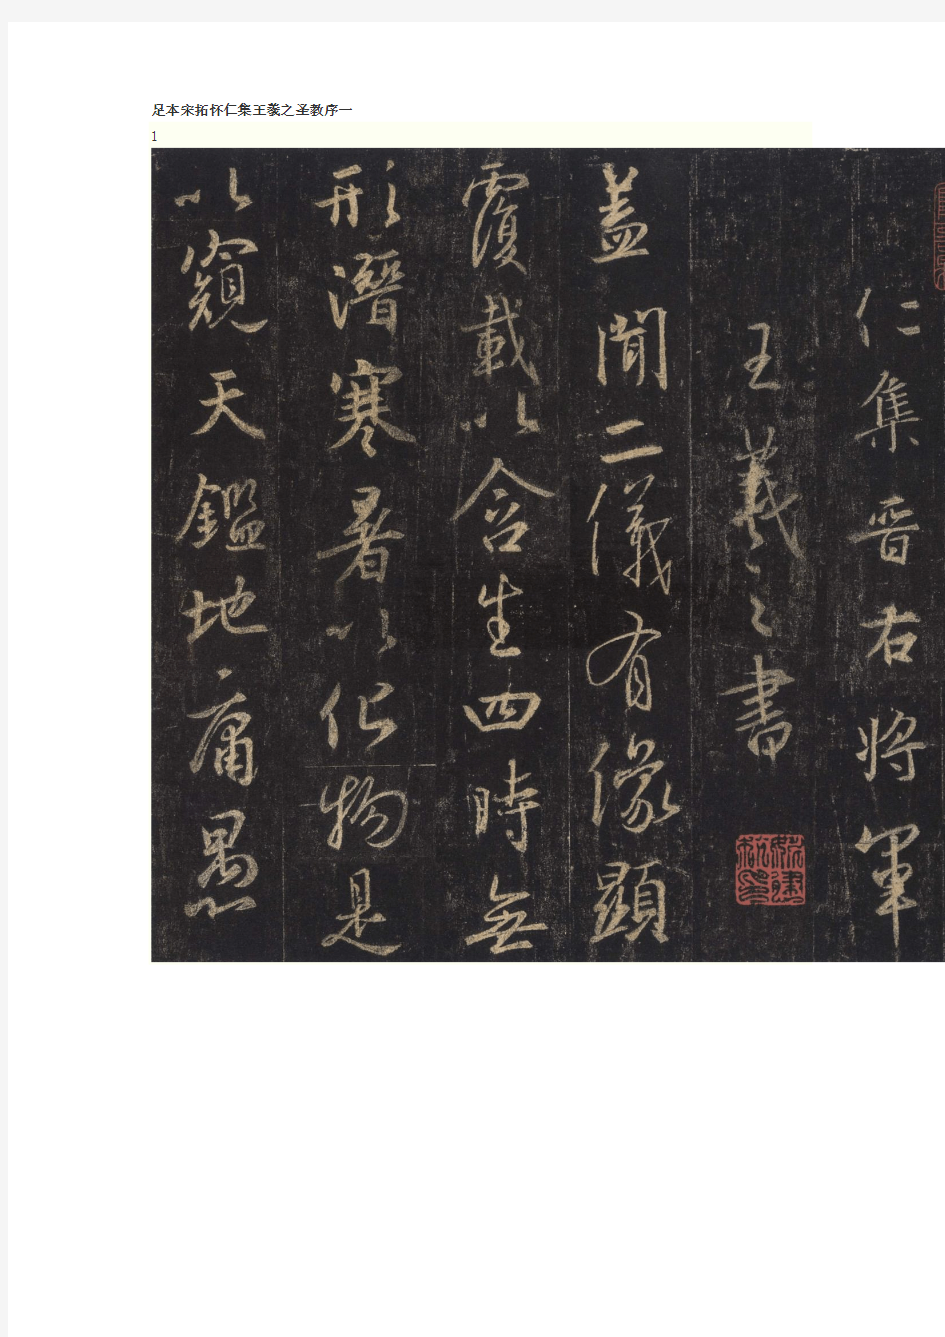 足本宋拓怀仁集王羲之圣教序一
1
仁集晋右将軍
王羲之書
蓋聞二儀有像顯
覆載以含生四時無
形潛寒暑以化物是
以窺天鑑地庸愚